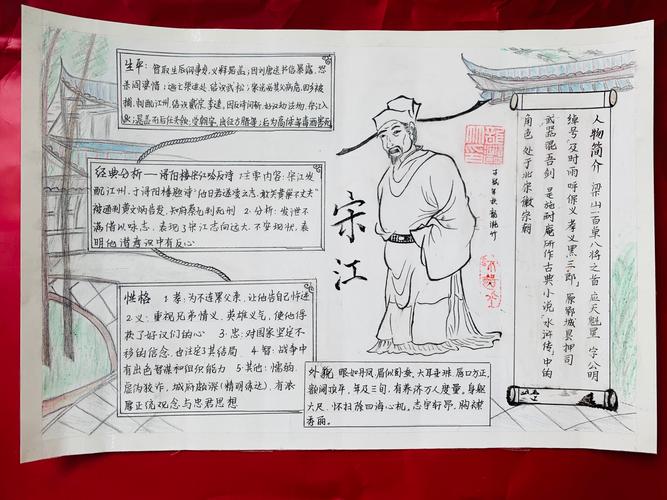 生平: 智取生辰纲事发,义释晁盖;因刘唐送书信暴露,怒
杀阎婆惜;逃亡柴进处,结识武松;
捕,刺配江州,结识戴宗,李逵,因反诗问斩,好汉劫法场,宋江入
伙;晁盖死后任头领,受朝廷招安,征讨方腊等;后为高俅等毒酒害死
经典分析——浔阳楼宋江吟反诗 1主要内容:宋江发
配江州,于浔阳楼题诗“他日若遂凌云志,敢笑黄巢不丈夫”
被通判黄文炳告发,知府蔡九判死刑 2:分析:发泄不
满借以咏志,表现了宋江志向远大,不安现状,表
明他潜意识中有反心
性格 1孝:为不连累父亲,让他告自己忤逆
2义:重视兄弟情义,英雄义气,使他得
获了好汉们的心 3:忠:对国家坚定不
移的信念,也注定了其结局 4:智:战争中
有出色智谋和组织能力 5:其他:懦弱、
虚伪狡诈,城府极深(精明练达),有浓
厚正统观念与忠君思想
宋江
外貌 眼如丹凤,眉似卧蚕,大耳垂珠,唇口方正,
额阔顶平,年及三旬,有养济万人度量,身躯
六尺,怀扫除四海心机。志宇轩昂,胸襟
秀丽。
人物简介 梁山一百单八将之首 应天魁星 字公明
绰号“及时雨,呼保义,孝义黑三郎”,原郓城县押司
武器锟吾剑 是施耐庵所作古典小说《水浒传》中的
角色 处于北宋徽宗朝